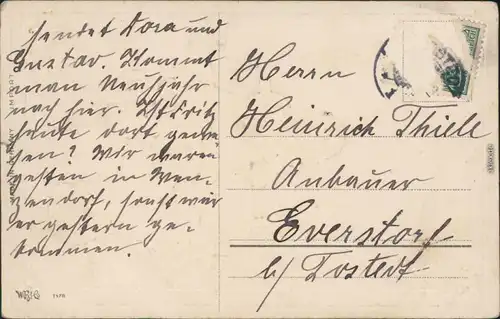 sendet Dora und
Gustav. Kommt
man Neujahr
nach hier. Ist Fritz
heute dort gewe-
sen? Wir waren
gestern in Wen-
zendorf, sonst wär
er gestern ge-
kommen.
Herrn
Heinrich Thiele
Anbauer
Everstorf
b/ Tostedt